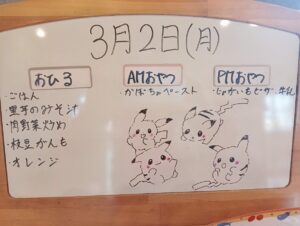 3月2日(月)
おひる
・ごはん
・里芋のみそ汁
・肉野菜炒め
・枝豆がんも
・オレンジ
AMおやつ
・かぼちゃペースト
PMおやつ
・じゃがいもピザ ・牛乳